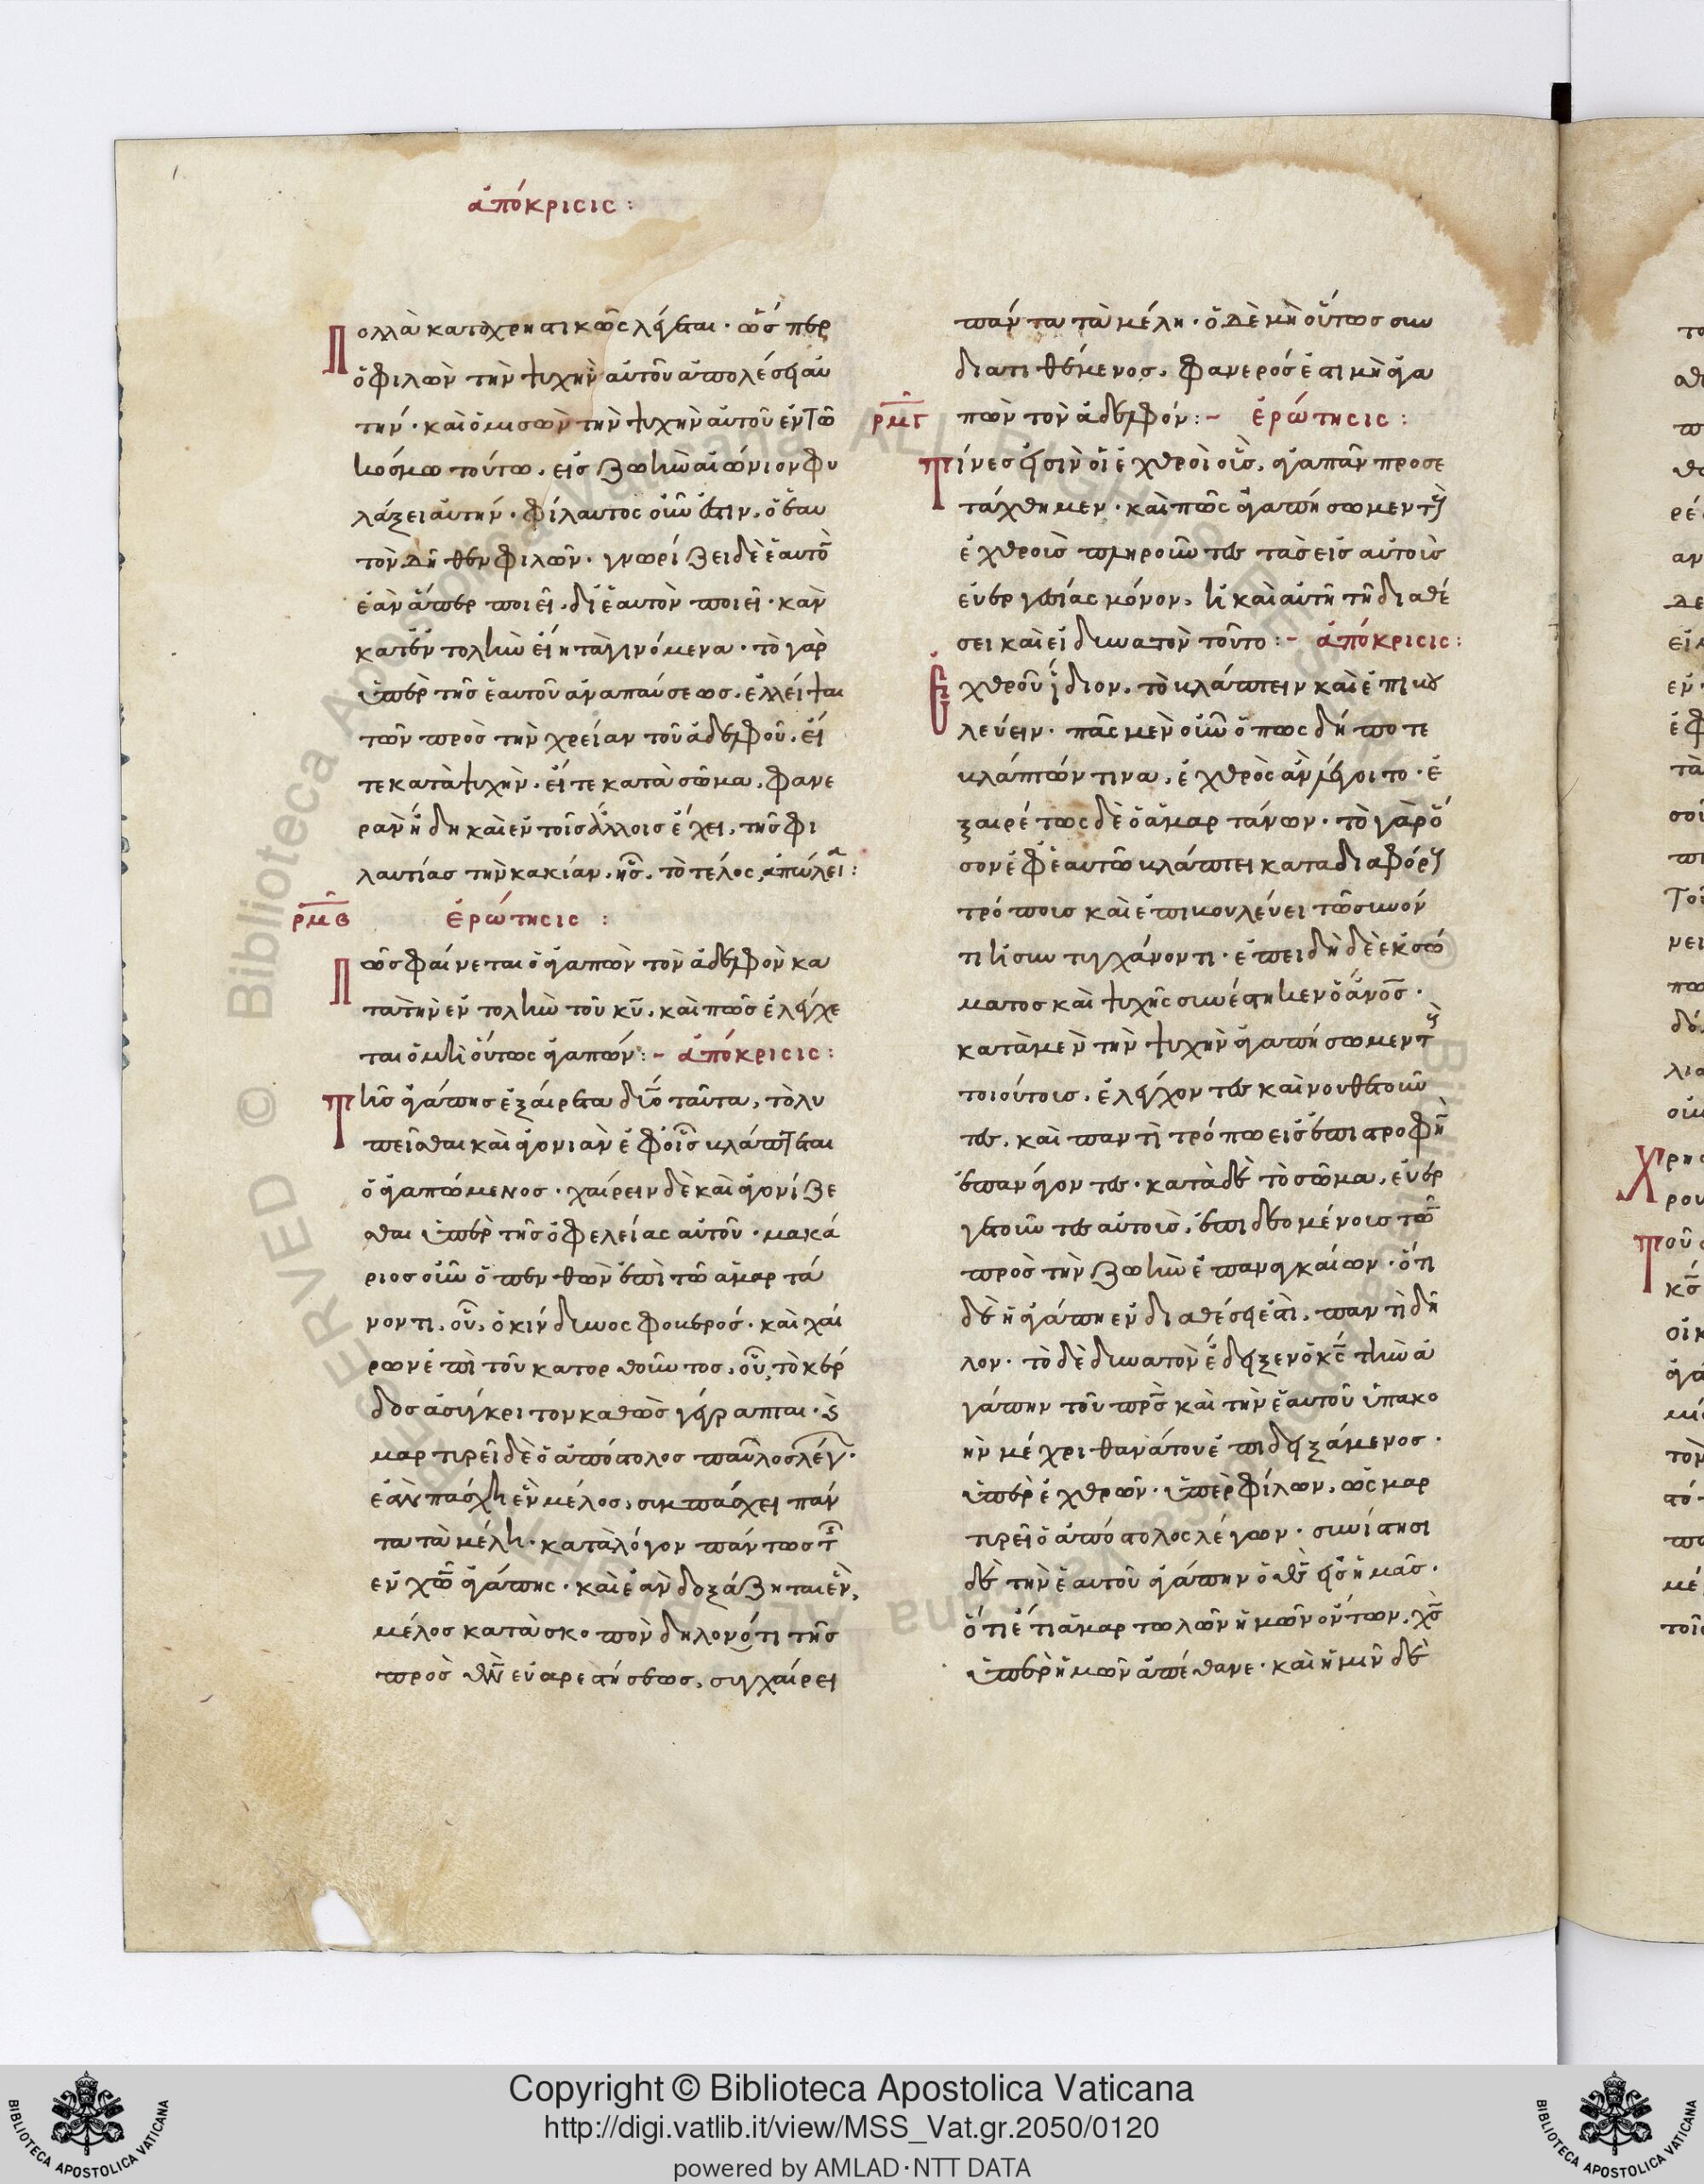 ἀπόκρισις:
Πολλὰ καταχρηστικῶς λέγεται· ὥσπερ
ὁ φιλῶν τὴν ψυχὴν αὐτοῦ ἀπολέσει αὐ
τήν· καὶ ὁ μισῶν τὴν ψυχὴν αὐτοῦ ἐν τῶ
κόσμω τούτω, εἰς ζωὴν αἰώνιον φυ
λάξει αὐτήν· φίλαυτος οὖν ἐστιν, ὁ ἑαυ
τὸν δῆθεν φιλῶν· γνωρίζει δὲ ἑαυτὸν
ἐὰν ἅπερ ποιεῖ, δι' ἑαυτὸν ποιεῖ· κἂν
κατ' ἐντολὴν εἴη τὰ γινόμενα· τὸ γὰρ
ὑπὲρ τῆς ἑαυτοῦ ἀναπαύσεως, ἐλλεῖψαι
τῶν πρὸς τὴν χρείαν τοῦ ἀδελφοῦ, εἴ
τε κατὰ ψυχὴν, εἴτε κατὰ σῶμα, φανε
ρὰν ἤδη καὶ ἐν τοῖς ἄλλοις ἔχει, τῆς φι
λαυτίας τὴν κακίαν, ἧς, τὸ τέλος ἀπώλεια:
ρμβ ἐρώτησις:
Πῶς φαίνεται ὁ ἀγαπῶν τὸν ἀδελφὸν κα
τὰ τὴν ἐντολὴν τοῦ κυ, καὶ πῶς ἐλέγχε
ται ὁ μὴ οὕτως ἀγαπῶν:- ἀπόκρισις:
Τῆς ἀγάπης ἐξαίρετα δύο ταῦτα, τὸ λυ
πεῖσθαι καὶ ἀγωνιᾶν ἐφ' οἷς βλάπτεται
ὁ ἀγαπώμενος· χαίρειν δὲ καὶ ἀγωνίζε
σθαι ὑπὲρ τῆς ὠφελείας αὐτοῦ· μακά
ριος οὖν ὁ πενθῶν ἐπὶ τῶ ἁμαρτά
νοντι, οὗ, ὁ κίνδυνος φοβερός· καὶ χαί
ρων ἐπὶ τοῦ κατορθοῦντος, οὗ, τὸ κέρ
δος ἀσύγκριτον καθὼς γέγραπται· ϛ
μαρτυρεῖ δὲ ὁ ἀπόστολος παῦλος λέγων·
ἐὰν πάσχη ἓν μέλος, συμπάσχει πάν
τα τὰ μέλη· κατὰ λόγον πάντως τῆς
ἐν χῶ ἀγάπης· καὶ ἐὰν δοξάζηται ἓν,
μέλος κατὰ σκοπὸν δηλονότι τῆς
πρὸς θν εὐαρεστήσεως, συγχαίρει
πάντα τὰ μέλη· ὁ δὲ μὴ οὕτως συν
διατιθέμενος, φανερός ἐστι μὴ ἀγα
ρμγ πῶν τὸν ἀδελφόν:- ἐρώτησις:
Τίνες εἰσὶν οἱ ἐχθροὶ οὓς, ἀγαπᾶν προσε
τάχθημεν· καὶ πῶς ἀγαπήσωμεν τοὺς
ἐχθροὺς πληροῦντες τὰς εἰς αὐτοὺς
εὐεργεσίας μόνον, ἢ καὶ αὐτῆ τῆ διαθέ
σει καὶ εἰ δυνατὸν τοῦτο:- ἀπόκρισις:
Ἐχθροῦ ἴδιον, τὸ βλάπτειν καὶ ἐπιβου
λεύειν· πᾶς μὲν οὖν ὅπως δήποτε
βλάπτων τινα, ἐχθρὸς ἂν λέγοιτο· ἐ
ξαιρέτως δὲ ὁ ἁμαρτάνων· τὸ γὰρ ὅ
σον ἐφ' ἑαυτῶ βλάπτει κατα διαφόρους
τρόπους καὶ ἐπιβουλεύει τῶ συνόν
τι ἢ συντυγχάνοντι· ἐπειδὴ δὲ ἐκ σώ
ματος καὶ ψυχῆς συνέστηκεν ὁ ἄνος·
κατὰ μὲν τὴν ψυχὴν ἀγαπήσωμεν τοὺς
τοιούτους, ἐλέγχοντες καὶ νουθετοῦν
τες, καὶ παντὶ τρόπω εἰς ἐπιστροφὴν
ἐπανάγοντες· κατὰ δὲ τὸ σῶμα, εὐερ
γετοῦντες αὐτοὺς, ἐπιδεομένους τῶν
πρὸς τὴν ζωὴν ἐπαναγκαίων· ὅτι
δὲ ἡ ἀγάπη ἐν διαθέσει ἐστὶ, παντὶ δῆ
λον· τὸ δὲ δυνατὸν ἔδειξεν ὁ κς τὴν ἀ
γάπην τοῦ πρς καὶ τὴν ἑαυτοῦ ὑπακο
ὴν μέχρι θανάτου ἐπιδειξάμενος·
ὑπὲρ ἐχθρῶν· ὑπὲρ φίλων, ὡς μαρ
τυρεῖ ὁ ἀπόστολος λέγων· συνίστησι
δὲ τὴν ἑαυτοῦ ἀγάπην ὁ θς εἰς ἡμᾶς·
ὅτι ἔτι ἁμαρτωλῶν ἡμῶν ὄντων, χς
ὑπὲρ ἡμῶν ἀπέθανε· καὶ ἡμῖν δὲ
Copyright © Biblioteca Apostolica Vaticana
http://digi.vatlib.it/view/MSS_Vat.gr.2050/0120
powered by AMLAD·NTT DATA
BIBLIOTECA APOSTOLICA VATICANA
BIBLIOTECA APOSTOLICA VATICANA